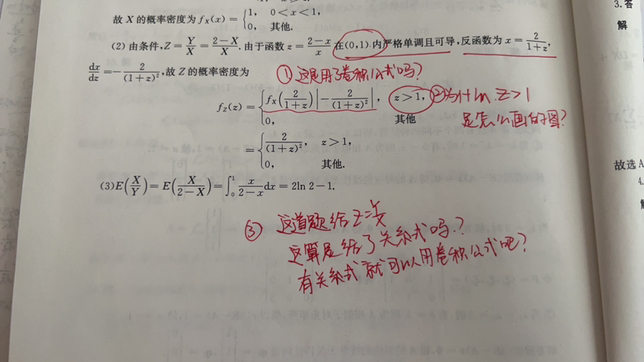 故 X 的概率密度为 fX(x) = { 1, 0<x<1, 0, 其他.
3.答
解
(2) 由条件, Z = Y/X = (2-X)/X, 由于函数 z = (2-x)/x 在(0,1)内严格单调且可导, 反函数为 x = 2/(1+z),
dx/dz = -2/(1+z)², 故 Z 的概率密度为
① 这是用了卷积公式吗?
fZ(z) = { fX(2/(1+z))|-2/(1+z)²|, z>1, 0, 其他
② 为什么 Z>1
是怎么画的图?
= { 2/(1+z)², z>1, 0, 其他.
故选A
4.
解
(3) E(X/Y) = E(X/(2-X)) = ∫₀¹ x/(2-x) dx = 2ln 2-1.
③ 这道题给Z=Y/X
这算是给了关系式吗?
有关系式就可以用卷积公式吧?